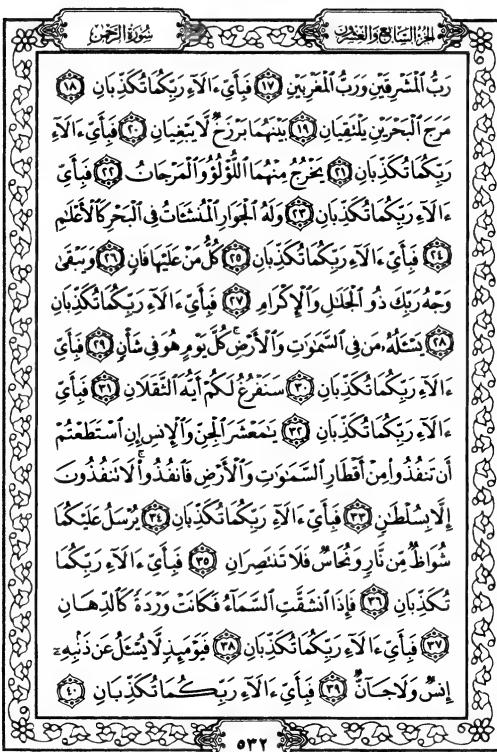 سُورَةُ الرَّحْمٰن
الجُزْءُ السَّابِعُ وَالعِشْرُونَ
رَبُّ ٱلْمَشْرِقَيْنِ وَرَبُّ ٱلْمَغْرِبَيْنِ ١٧ فَبِأَيِّ ءَالَآءِ رَبِّكُمَا تُكَذِّبَانِ ١٨
مَرَجَ ٱلْبَحْرَيْنِ يَلْتَقِيَانِ ١٩ بَيْنَهُمَا بَرْزَخٌ لَّا يَبْغِيَانِ ٢٠ فَبِأَيِّ ءَالَآءِ
رَبِّكُمَا تُكَذِّبَانِ ٢١ يَخْرُجُ مِنْهُمَا ٱللُّؤْلُؤُ وَٱلْمَرْجَاتُ ٢٢ فَبِأَيِّ
ءَالَآءِ رَبِّكُمَا تُكَذِّبَانِ ٢٣ وَلَهُ ٱلْجَوَارِ ٱلْمُنشَـَٔاتُ فِى ٱلْبَحْرِ كَٱلْأَعْلَٰمِ
٢٤ فَبِأَيِّ ءَالَآءِ رَبِّكُمَا تُكَذِّبَانِ ٢٥ كُلُّ مَنْ عَلَيْهَا فَانٍ ٢٦ وَيَبْقَىٰ
وَجْهُ رَبِّكَ ذُو ٱلْجَلَٰلِ وَٱلْإِكْرَامِ ٢٧ فَبِأَيِّ ءَالَآءِ رَبِّكُمَا تُكَذِّبَانِ
٢٨ يَسْـَٔلُهُۥ مَن فِى ٱلسَّمَٰوَٰتِ وَٱلْأَرْضِ ۚ كُلَّ يَوْمٍ هُوَ فِى شَأْنٍ ٢٩ فَبِأَيِّ
ءَالَآءِ رَبِّكُمَا تُكَذِّبَانِ ٣٠ سَنَفْرُغُ لَكُمْ أَيُّهَ ٱلثَّقَلَانِ ٣١ فَبِأَيِّ
ءَالَآءِ رَبِّكُمَا تُكَذِّبَانِ ٣٢ يَٰمَعْشَرَ ٱلْجِنِّ وَٱلْإِنسِ إِنِ ٱسْتَطَعْتُمْ
أَن تَنفُذُوا۟ مِنْ أَقْطَارِ ٱلسَّمَٰوَٰتِ وَٱلْأَرْضِ فَٱنفُذُوا۟ ۚ لَا تَنفُذُونَ
إِلَّا بِسُلْطَٰنٍ ٣٣ فَبِأَيِّ ءَالَآءِ رَبِّكُمَا تُكَذِّبَانِ ٣٤ يُرْسَلُ عَلَيْكُمَا
شُوَاظٌ مِّن نَّارٍ وَنُحَاسٌ فَلَا تَنتَصِرَانِ ٣٥ فَبِأَيِّ ءَالَآءِ رَبِّكُمَا
تُكَذِّبَانِ ٣٦ فَإِذَا ٱنشَقَّتِ ٱلسَّمَآءُ فَكَانَتْ وَرْدَةً كَٱلدِّهَانِ
٣٧ فَبِأَيِّ ءَالَآءِ رَبِّكُمَا تُكَذِّبَانِ ٣٨ فَيَوْمَئِذٍ لَّا يُسْـَٔلُ عَن ذَنۢبِهِۦٓ
إِنسٌ وَلَا جَآنٌّ ٣٩ فَبِأَيِّ ءَالَآءِ رَبِّكُمَا تُكَذِّبَانِ ٤٠
٥٣٢